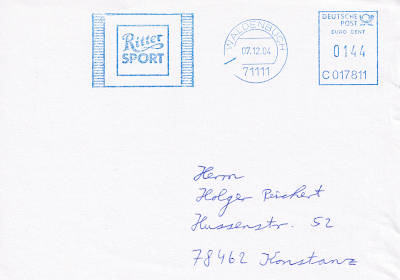 Ritter
SPORT
WALDENBUCH
07.12.04
71111
DEUTSCHE
POST
EURO CENT
0144
C017811
Herrn
Holger Reichert
Hussenstr. 52
78462 Konstanz